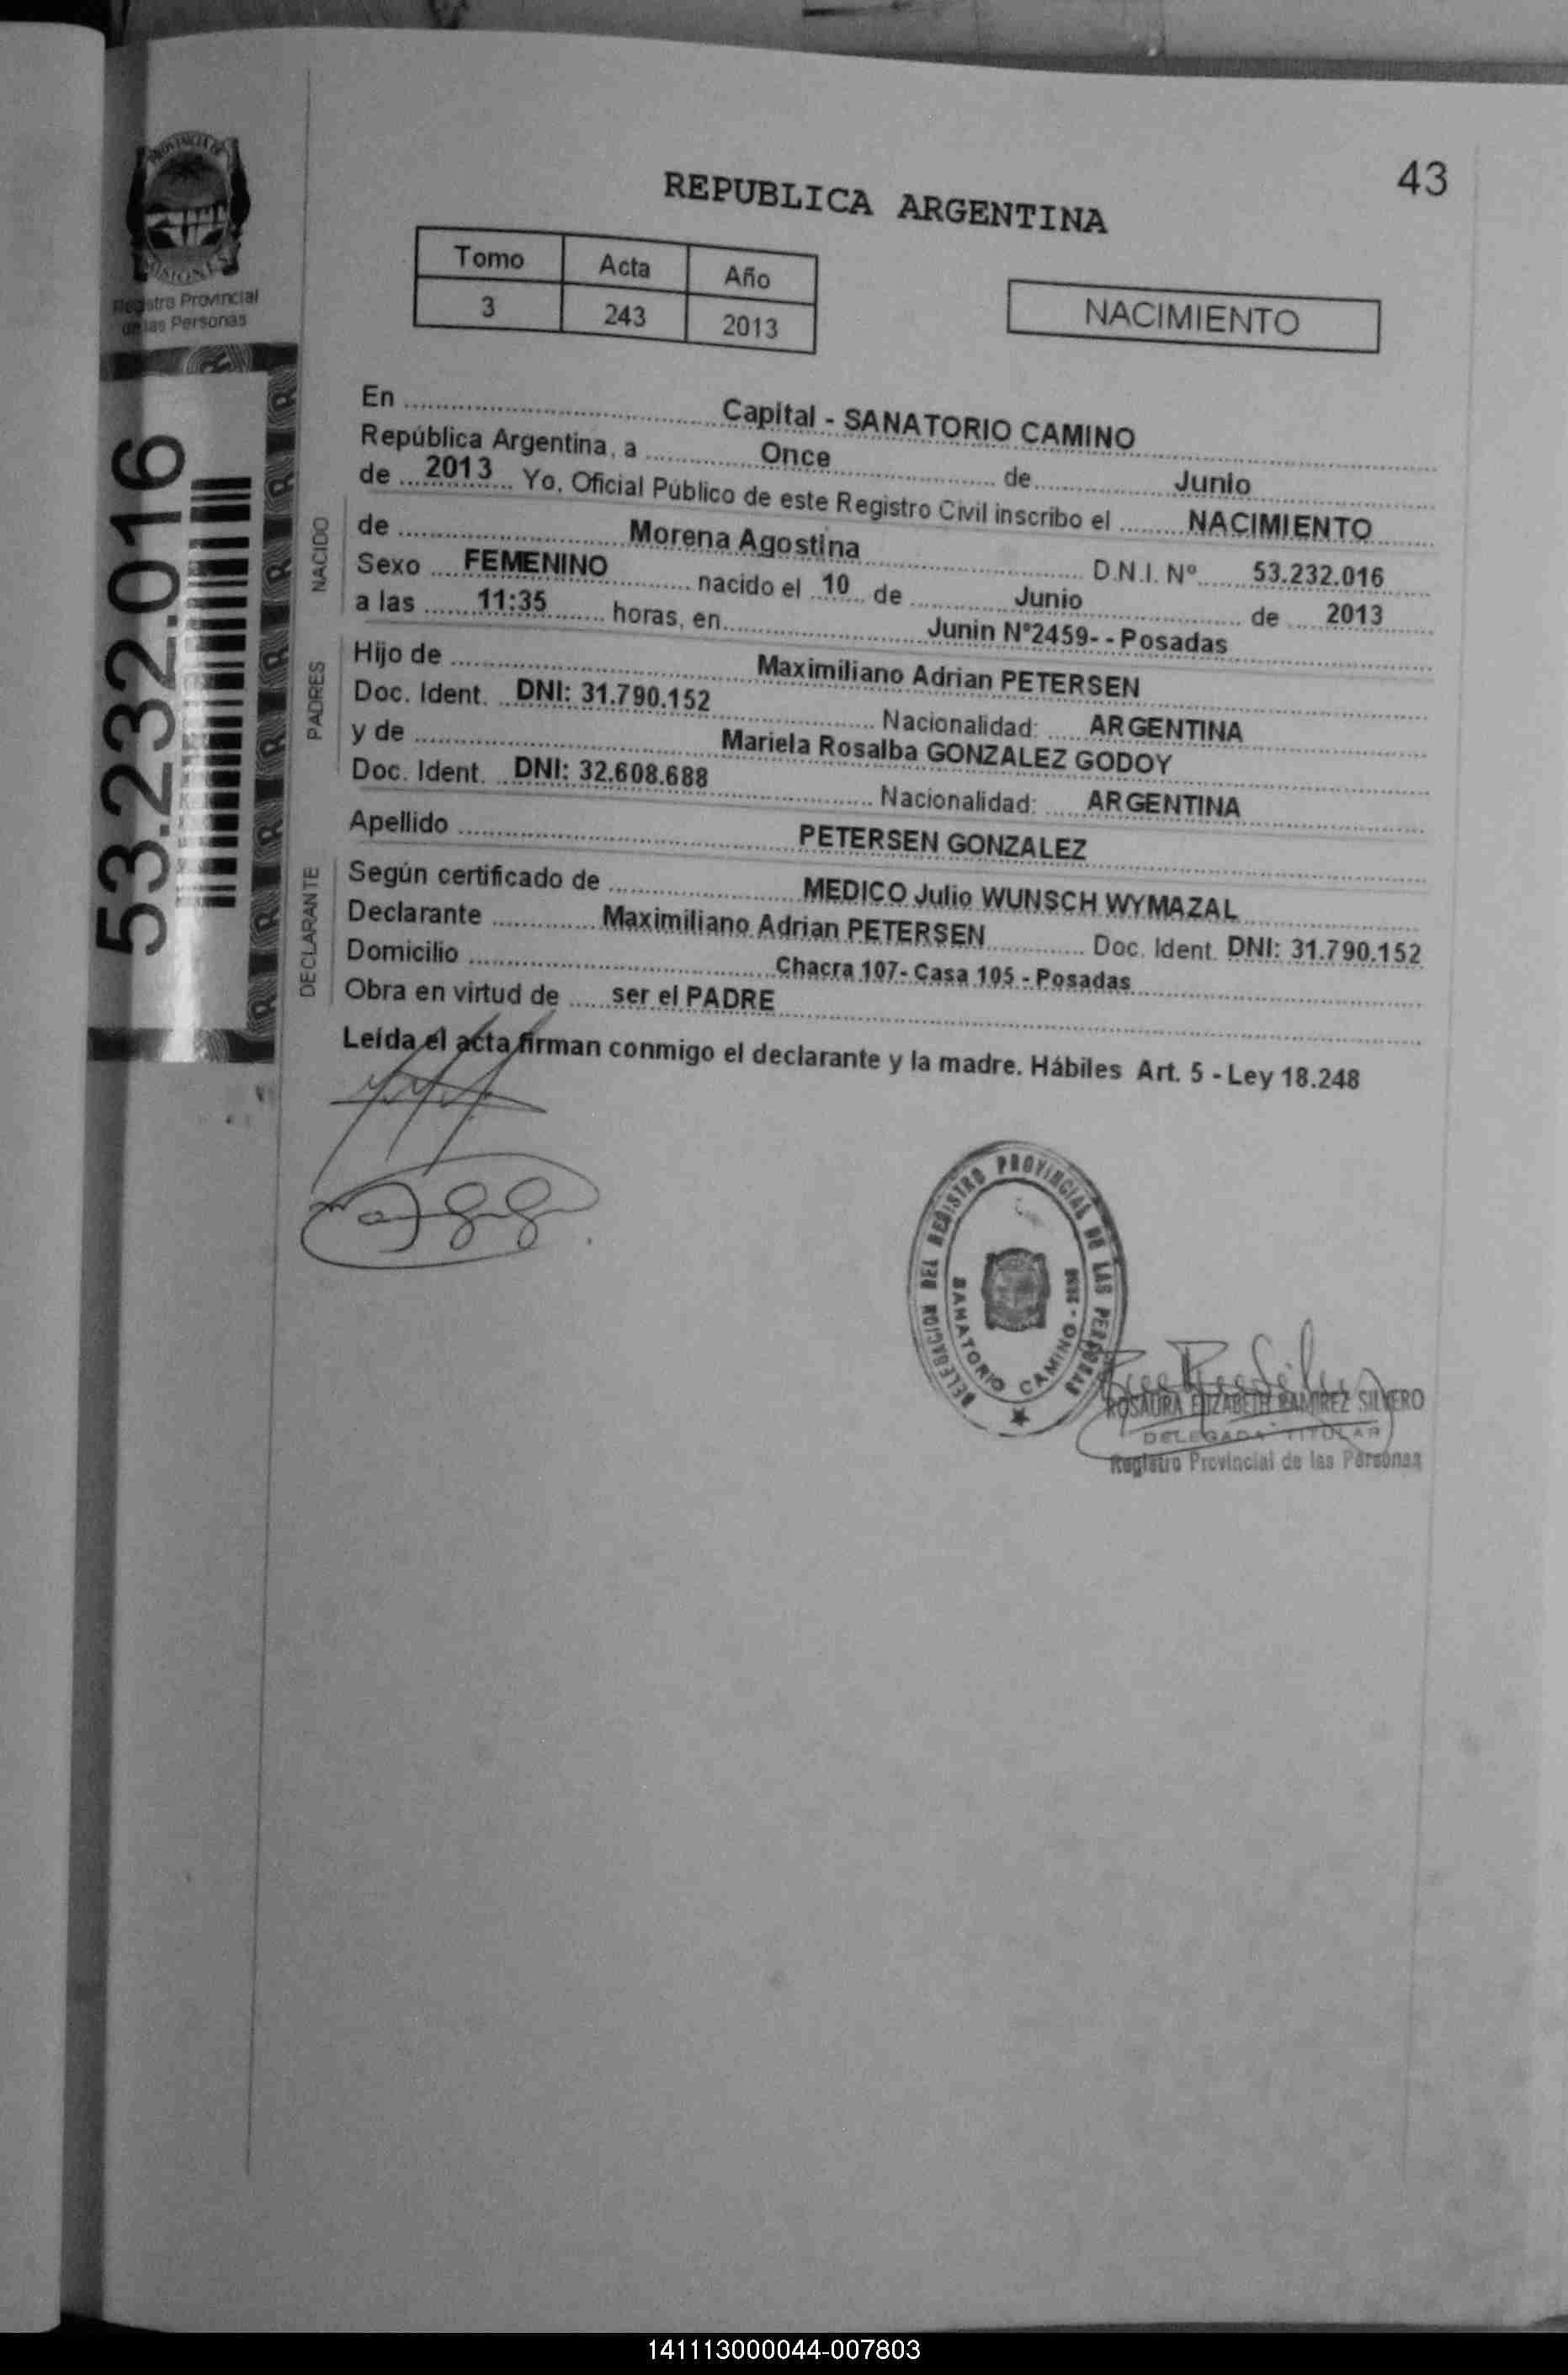 43
REPUBLICA ARGENTINA
PROVINCIA DE
MISIONES
Registro Provincial
de las Personas
Tomo Acta Año
3 243 2013
NACIMIENTO
53.232.016
En Capital - SANATORIO CAMINO
República Argentina, a Once de Junio
de 2013 Yo, Oficial Público de este Registro Civil inscribo el NACIMIENTO
NACIDO
de Morena Agostina D.N.I. Nº 53.232.016
Sexo FEMENINO nacido el 10 de Junio de 2013
a las 11:35 horas, en Junin Nº2459- - Posadas
PADRES
Hijo de Maximiliano Adrian PETERSEN
Doc. Ident. DNI: 31.790.152 Nacionalidad: ARGENTINA
y de Mariela Rosalba GONZALEZ GODOY
Doc. Ident. DNI: 32.608.688 Nacionalidad: ARGENTINA
Apellido PETERSEN GONZALEZ
DECLARANTE
Según certificado de MEDICO Julio WUNSCH WYMAZAL
Declarante Maximiliano Adrian PETERSEN Doc. Ident. DNI: 31.790.152
Domicilio Chacra 107- Casa 105 - Posadas
Obra en virtud de ser el PADRE
Leída el acta firman conmigo el declarante y la madre. Hábiles Art. 5 - Ley 18.248
DELEGACION DEL REGISTRO PROVINCIAL DE LAS PERSONAS
SANATORIO CAMINO
ROSAURA ELIZABETH RAMIREZ SILVERO
DELEGADA TITULAR
Registro Provincial de las Personas
141113000044-007803